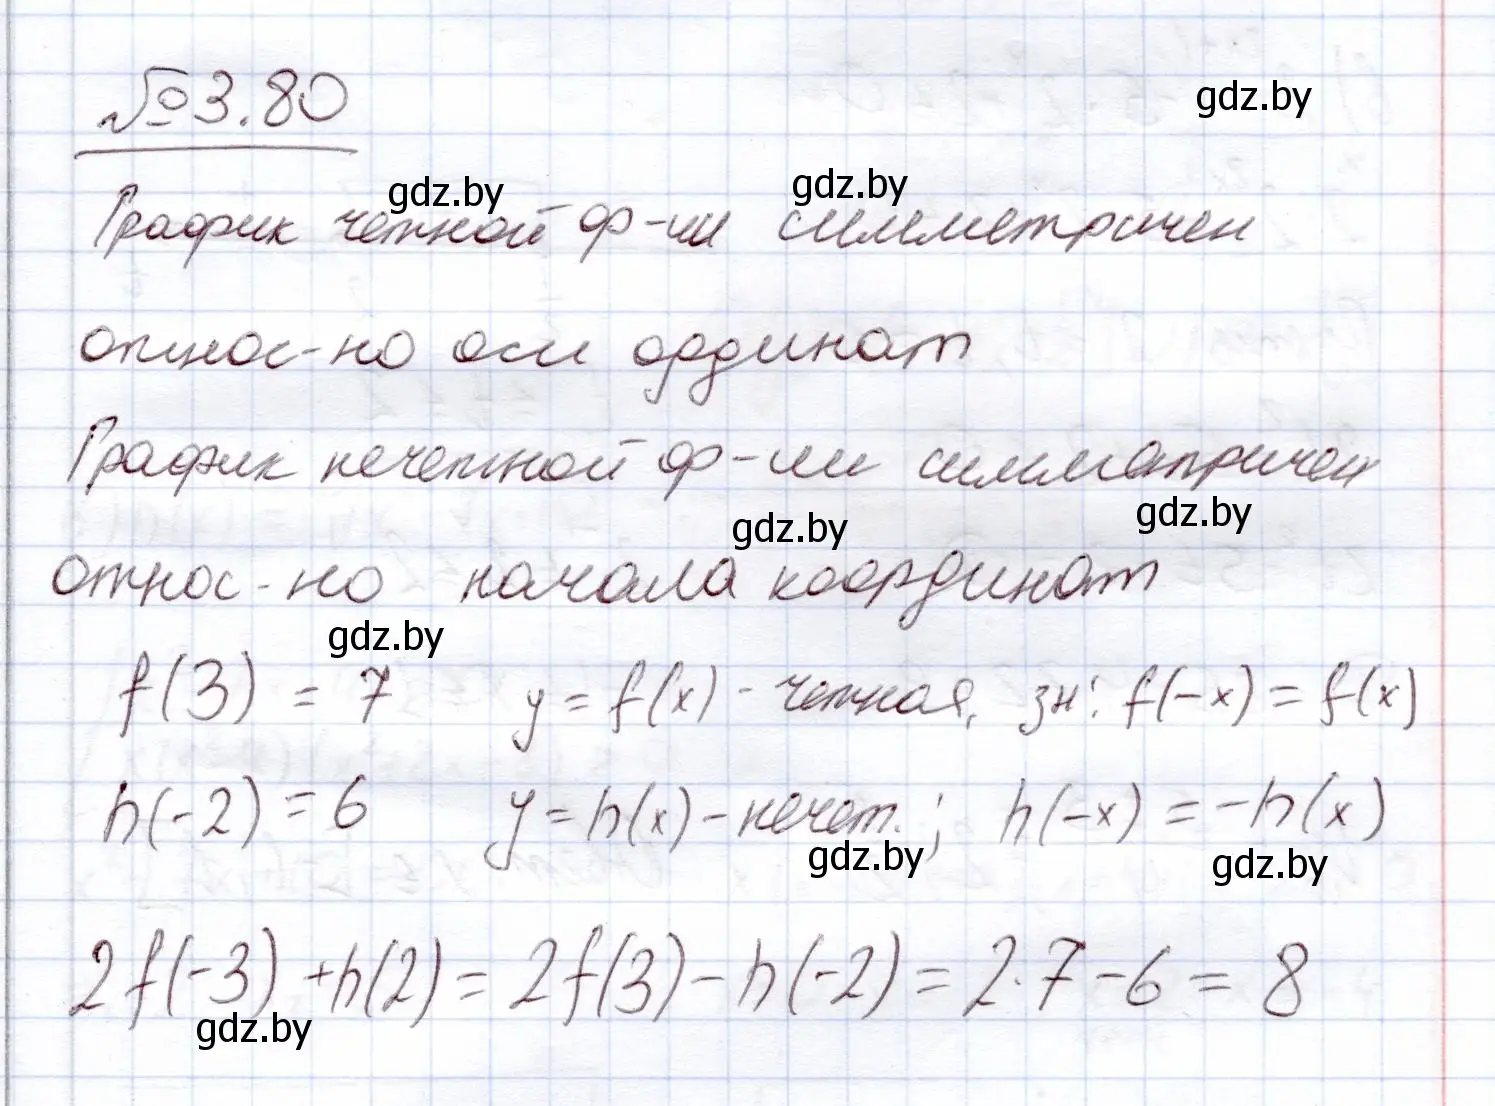 №3.80
gdz.by
gdz.by
gdz.by
График четной ф-ии симметричен
относ-но оси ординат
График нечетной ф-ии симметричен
gdz.by
gdz.by
относ-но начала координат
gdz.by
f(3) = 7 y = f(x) - четная, зн: f(-x) = f(x)
h(-2) = 6 y = h(x) - нечет.; h(-x) = -h(x)
gdz.by
gdz.by
2f(-3) + h(2) = 2f(3) - h(-2) = 2·7 - 6 = 8
gdz.by